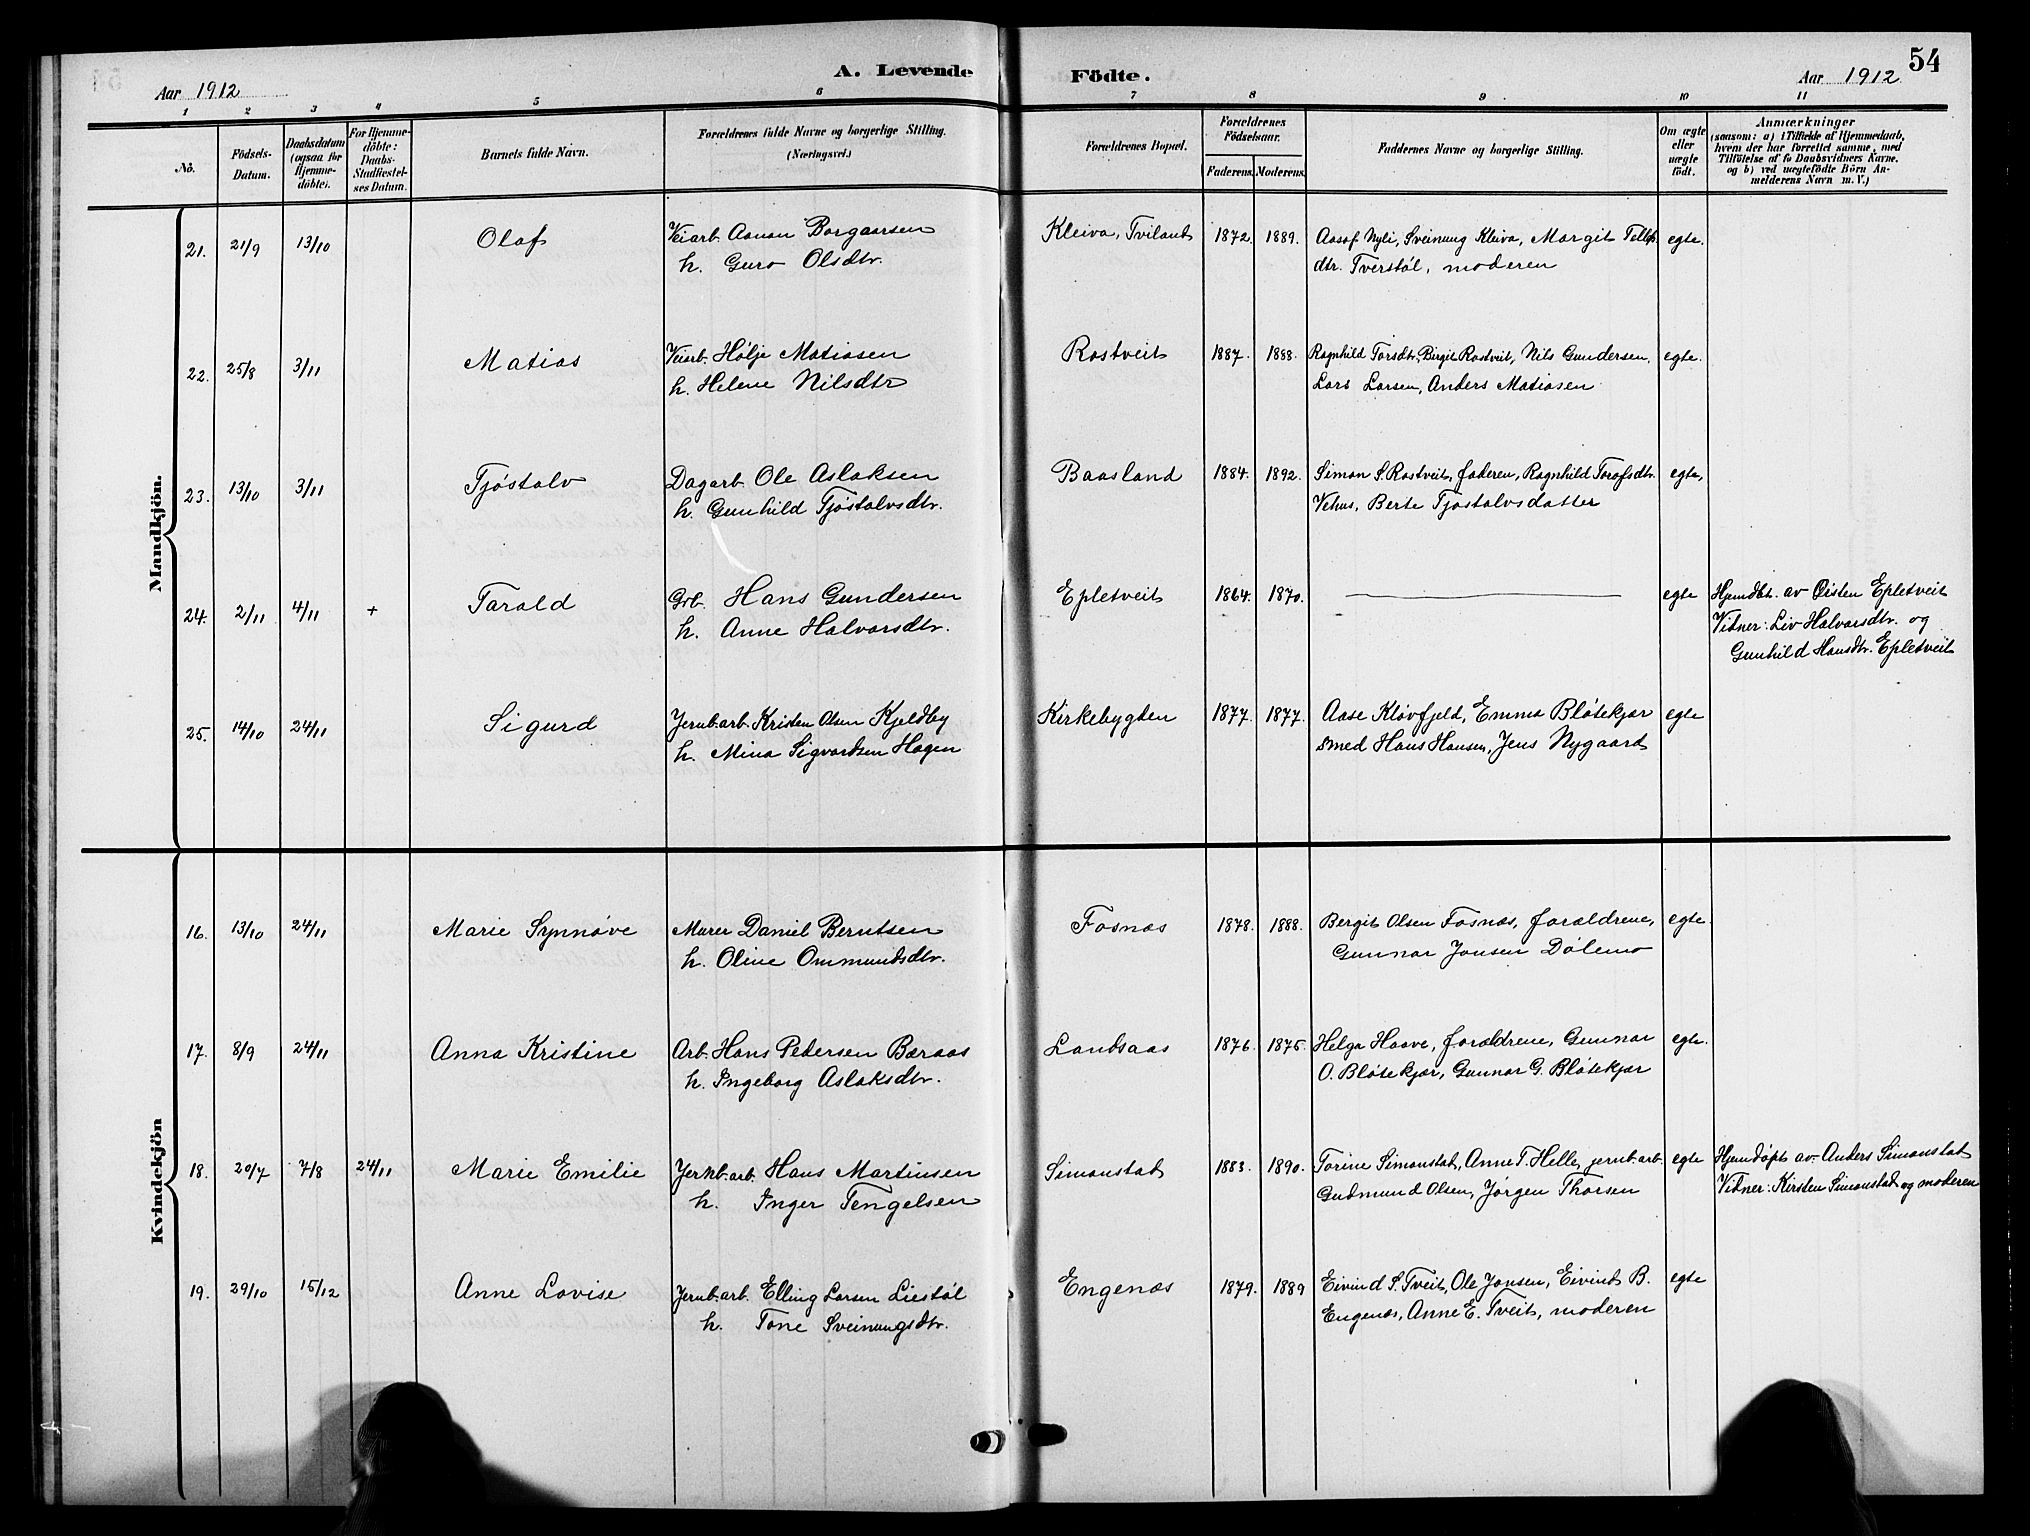 54
A. Levende Födte.
Aar 1912
Aar 1912
1 2 3 4 5 6 7 8 9 10 11
No.
Födsels-Datum.
Daabsdatum (ogsaa for Hjemmedöbte).
For Hjemmedöbte: Daabs-Stadfæstelses Datum.
Barnets fulde Navn.
Forældrenes fulde Navne og borgerlige Stilling. (Næringsvei.)
Forældrenes Bopæl.
Forældrenes Födselsaar.
Faderens. Moderens.
Faddernes Navne og borgerlige Stilling.
Om ægte eller uægte födt.
Anmærkninger
(saasom: a) i Tilfælde af Hjemmedaab, hvem der har forrettet samme, med Tilföielse af to Daabsvidners Navne. og b) ved uægtefödte Börn Anmelderens Navn m. V.)
Mandkjön.
21. 21/9 13/10 Olaf Veiarb. Aanon Borgaarsen Kleiva, Tviland 1872. 1889. Aasof Nyli, Sveinung Kleiva, Margit Tellefs egte.
h. Guro Olsdtr. dtr. Tverstøl, moderen
22. 25/8 3/11 Matias Veiarb. Hølje Matiasen Rostveit 1887. 1888. Ragnhild Torsdtr, Birgit Rostveit, Nils Gundersen, egte.
h. Helene Nilsdtr Lars Larsen, Anders Matiasen
23. 13/10 3/11 Tjøstolv Dagarb. Ole Aslaksen Baasland 1884. 1892. Simon S. Rostveit, faderen, Ragnhild Torofsdtr. egte,
h. Gunhild Tjøstolvsdtr. Vehus, Berte Tjøstolvsdatter
24. 2/11 4/11 + Tarald Grb. Hans Gundersen Epletveit 1864. 1870. — egte Hjemdbt. av Øisten Epletveit
h. Anne Halvorsdtr. Vitner: Liv Halvorsdtr. og
Gunhild Hansdtr. Epletveit
25. 14/10 24/11 Sigurd Jernb.arb. Kristen Olsen Kjeldby Kirkebygden 1877. 1877. Aase Kløvfjeld, Emma Bløtekjær egte
h. Mina Sigvardsen Hagen smed Hans Hansen, Jens Nygaard
Kvindekjön
16. 13/10 24/11 Marie Synnøve Murer Daniel Berntsen Fosnæs 1878. 1888. Bergit Olsen Fosnæs, forældrene, egte.
h. Oline Ommundsdtr. Gunnar Jonsen Dølemo
17. 8/9 24/11 Anna Kristine Arb. Hans Pedersen Bæraas Landsaas 1876. 1875. Helga Haave, forældrene, Gunnar egte.
h. Ingeborg Aslaksdtr. O. Bløtekjær, Gunnar G. Bløtekjær
18. 20/7 7/8 24/11 Marie Emilie Jernb.arb. Hans Martinsen Simonstad 1883. 1890. Torine Simonstad, Anne T. Helle, jernb.arb. egte Hjemdøpt av Anders Simonstad
h. Inger Tengelsen Gudmund Olsen, Jørgen Thorsen Vitner: Kirsten Simonstad og moderen
19. 29/10 15/12 Anne Lovise Jernb.arb. Elling Larsen Liestøl Engenæs 1879. 1889 Eivind S. Tveit, Ole Jonsen, Eivind B. egte
h. Tone Sveinungsdtr. Engenæs, Anne E. Tveit, moderen